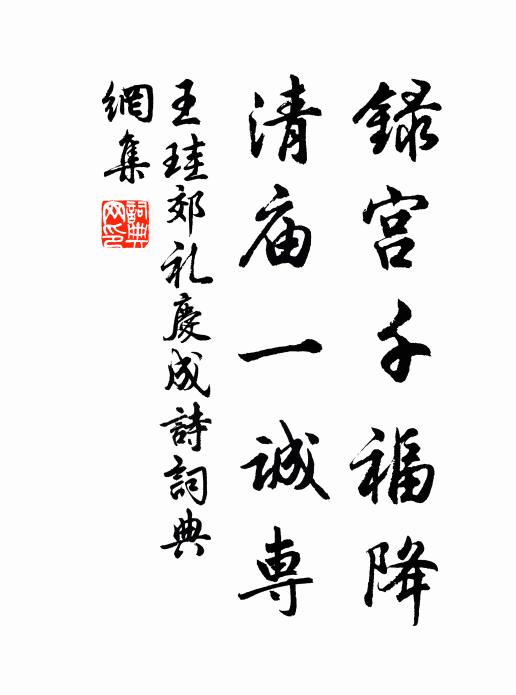 録宫千福降
清庙一诚専
王珪郊礼慶成詩詞典
網集
詞典网印